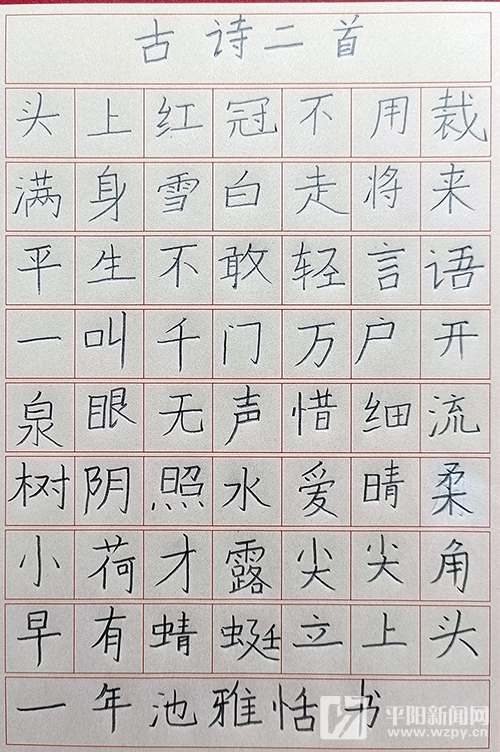 古诗二首
头上红冠不用裁
满身雪白走将来
平生不敢轻言语
一叫千门万户开
泉眼无声惜细流
树阴照水爱晴柔
小荷才露尖尖角
早有蜻蜓立上头
一年池雅恬书
平阳新闻网
www.wzpy.cn